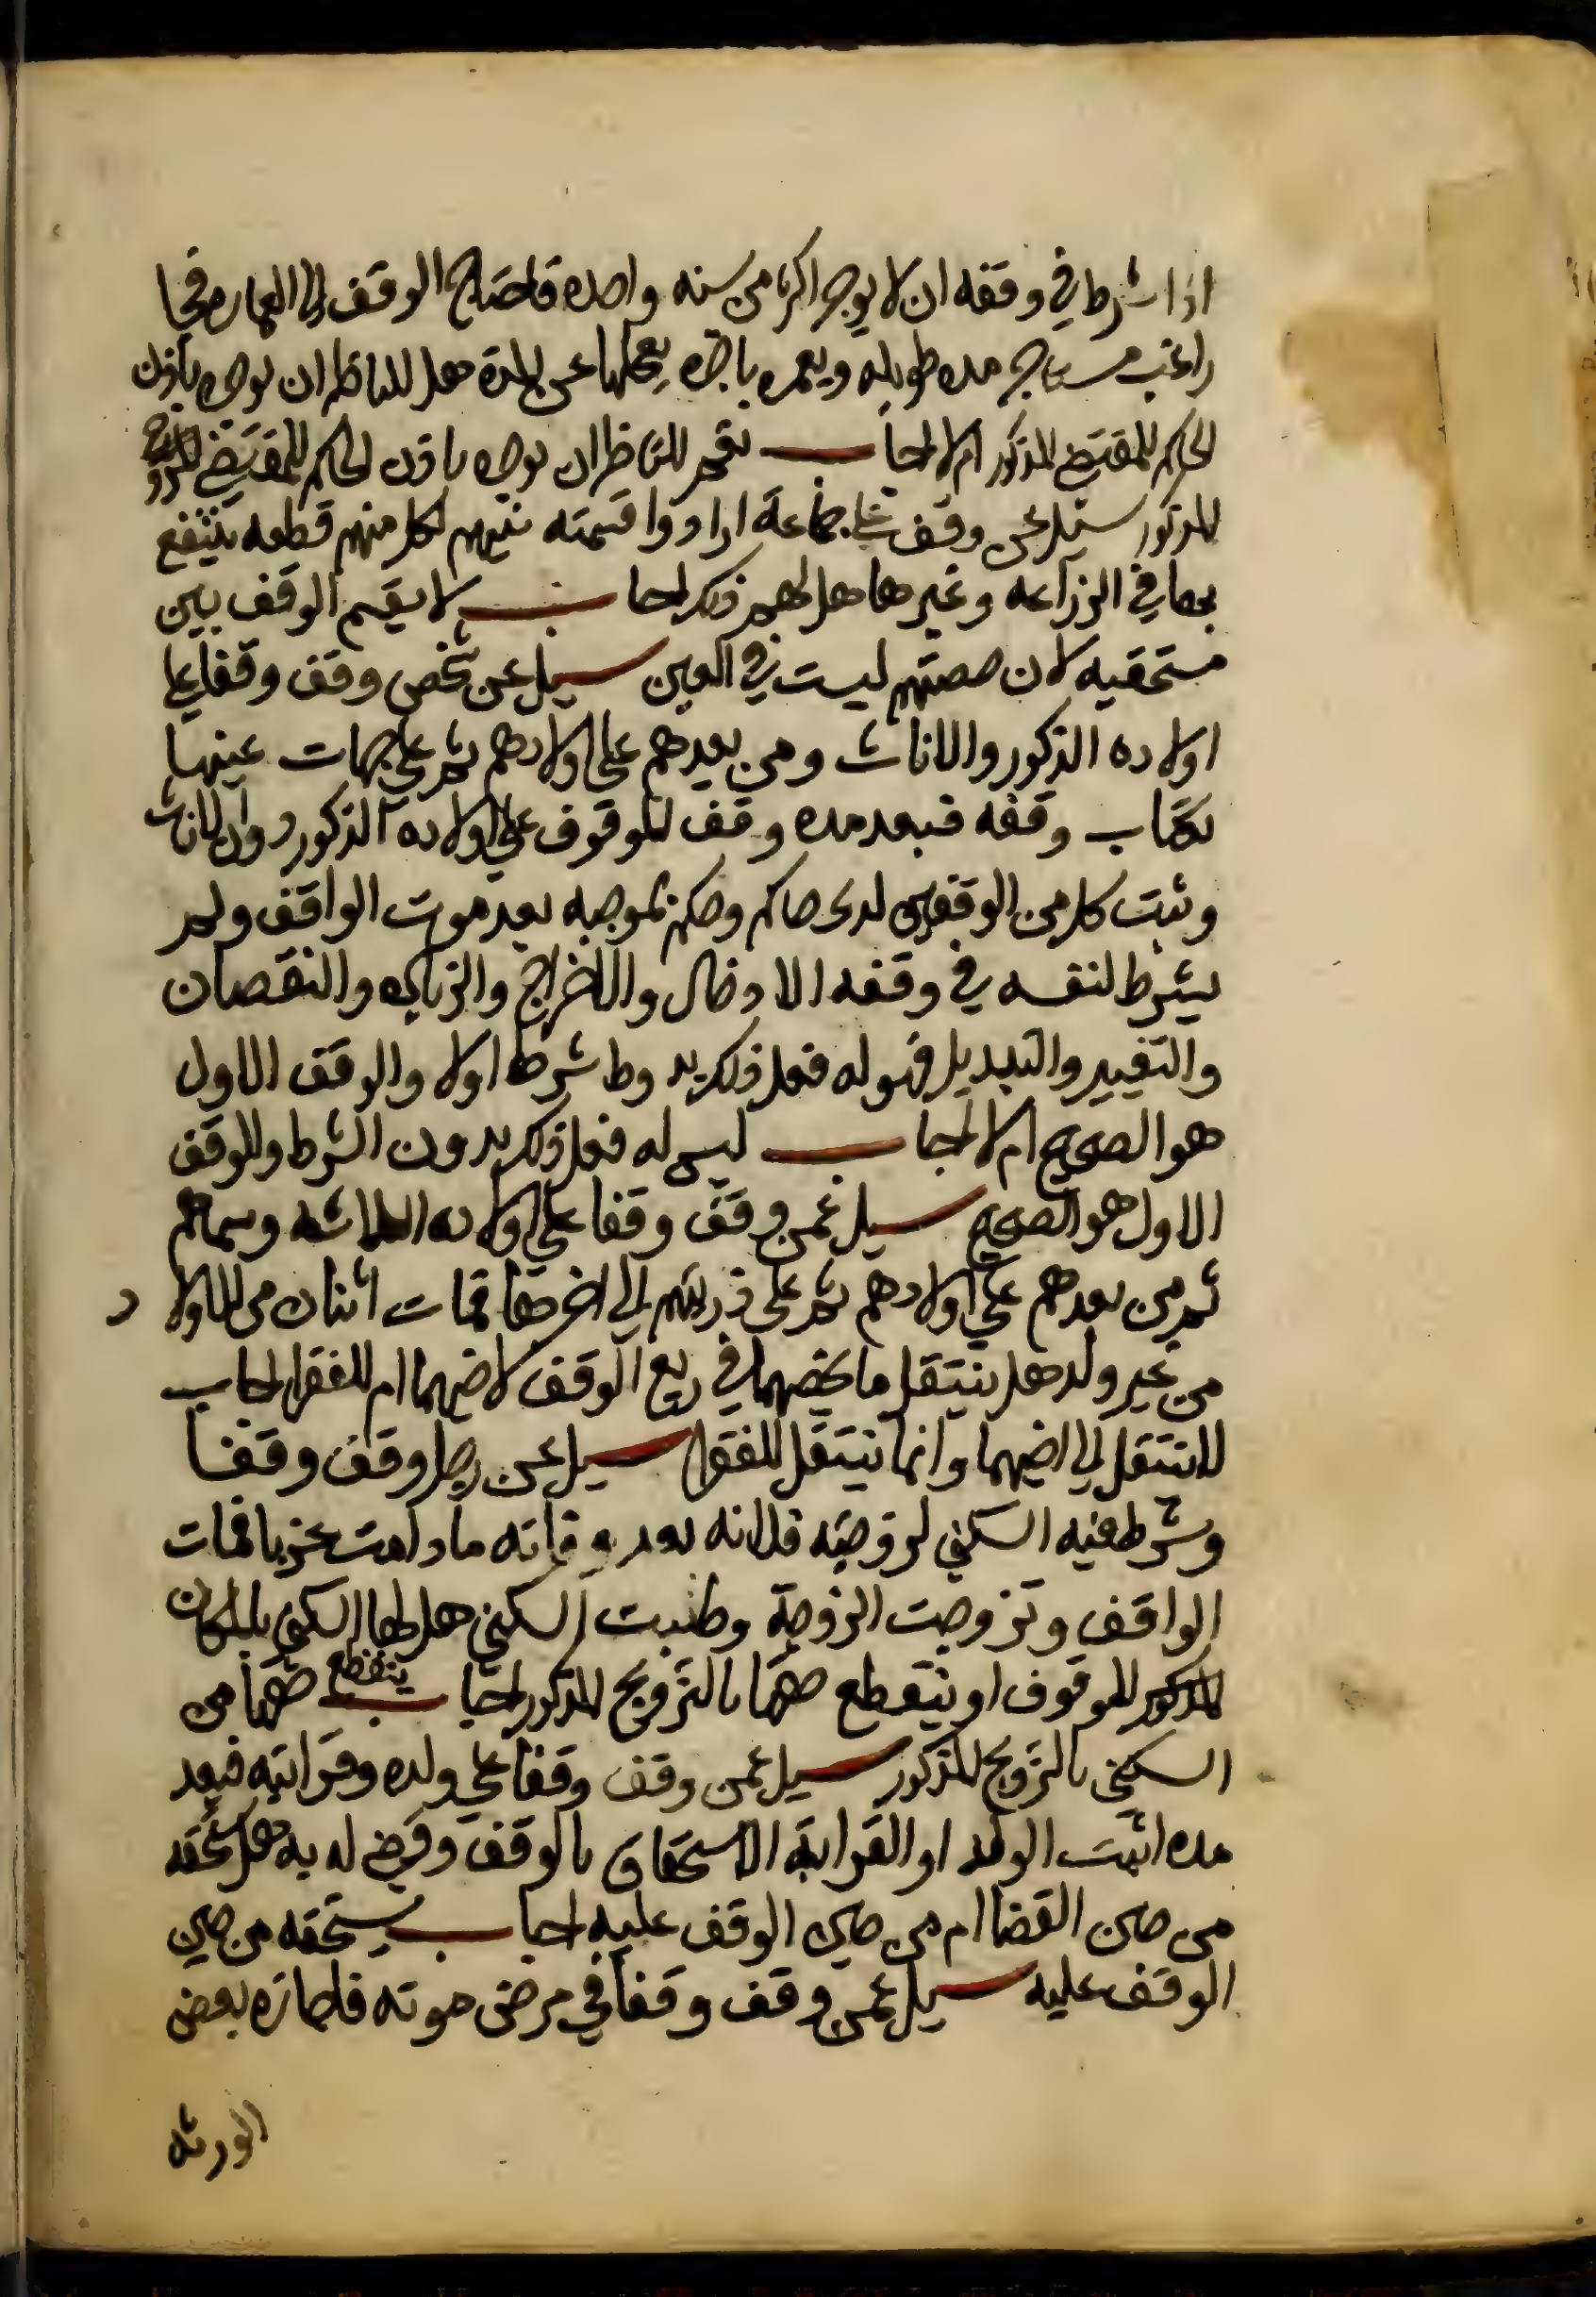 اذا شرط في وقفه ان لا يوجر اكثر من سنه واحده فاحتاج الوقف الى العماره فجا
راغب يستاجره مده طويله ويعمره باجره يعجلها عن المدة هل للناظر ان يوجره باذن
الحاكم للمقتضى المذكور ام لا اجاب نعم للناظر ان يوجره باذن الحاكم للمقتضى
المذكور سيل عن وقف على جماعة ارادوا قسمته بينهم لكل منهم قطعه ينتفع
بها في الزراعه وغيرها هل لهم ذلك اجاب لا يقسم الوقف بين
مستحقيه لان حصتهم ليست في العين سيل عن شخص وقف وقفا على
اولاده الذكور والاناث ومن بعدهم على اولادهم ثم على جهات عينها
بكتاب وقفه فبعد مده وقف الموقوف على اولاده الذكور دون الاناث
وثبت كل من الوقفين لدى حاكم وحكم بموجبه بعد موت الواقف ولم
يشرط لنفسه في وقفه الادخال والاخراج والزياده والنقصان
والتغيير والتبديل فهل له فعل ذلك بدون ما شرطه اولا والوقف الاول
هو الصحيح ام لا اجاب ليس له فعل ذلك بدون الشرط والوقف
الاول هو الصحيح سيل عمن وقف وقفا على اولاده الثلاثه وسماهم
ثم من بعدهم على اولادهم ثم على ذريتهم الى اخرها فمات اثنان من الاولاد
من غير ولد هل ينتقل ما يخصهما في ريع الوقف لاخيهما ام للفقرا اجاب
لا ينتقل الى اخيهما وانما ينتقل للفقرا سيل عن رجل وقف وقفا
وشرط فيه السكنى لزوجته فلانه بعد وفاته ما دامت عزبا فمات
الواقف وتزوجت الزوجة وطلبت السكنى هل لها السكنى بالمكان
المذكور الموقوف او ينقطع حقها بالتزويج المذكور اجاب ينقطع حقها من
السكنى بالتزويج المذكور سيل عمن وقف وقفا على ولده وقرابته فبعد
مده اثبت الولد او القرابة الاستحقاق بالوقف وقضي له به هل يستحقه
من حين القضا ام من حين الوقف عليه اجاب يستحقه من حين
الوقف عليه سيل عمن وقف وقفا في مرض موته فاجازه بعض
الورثه